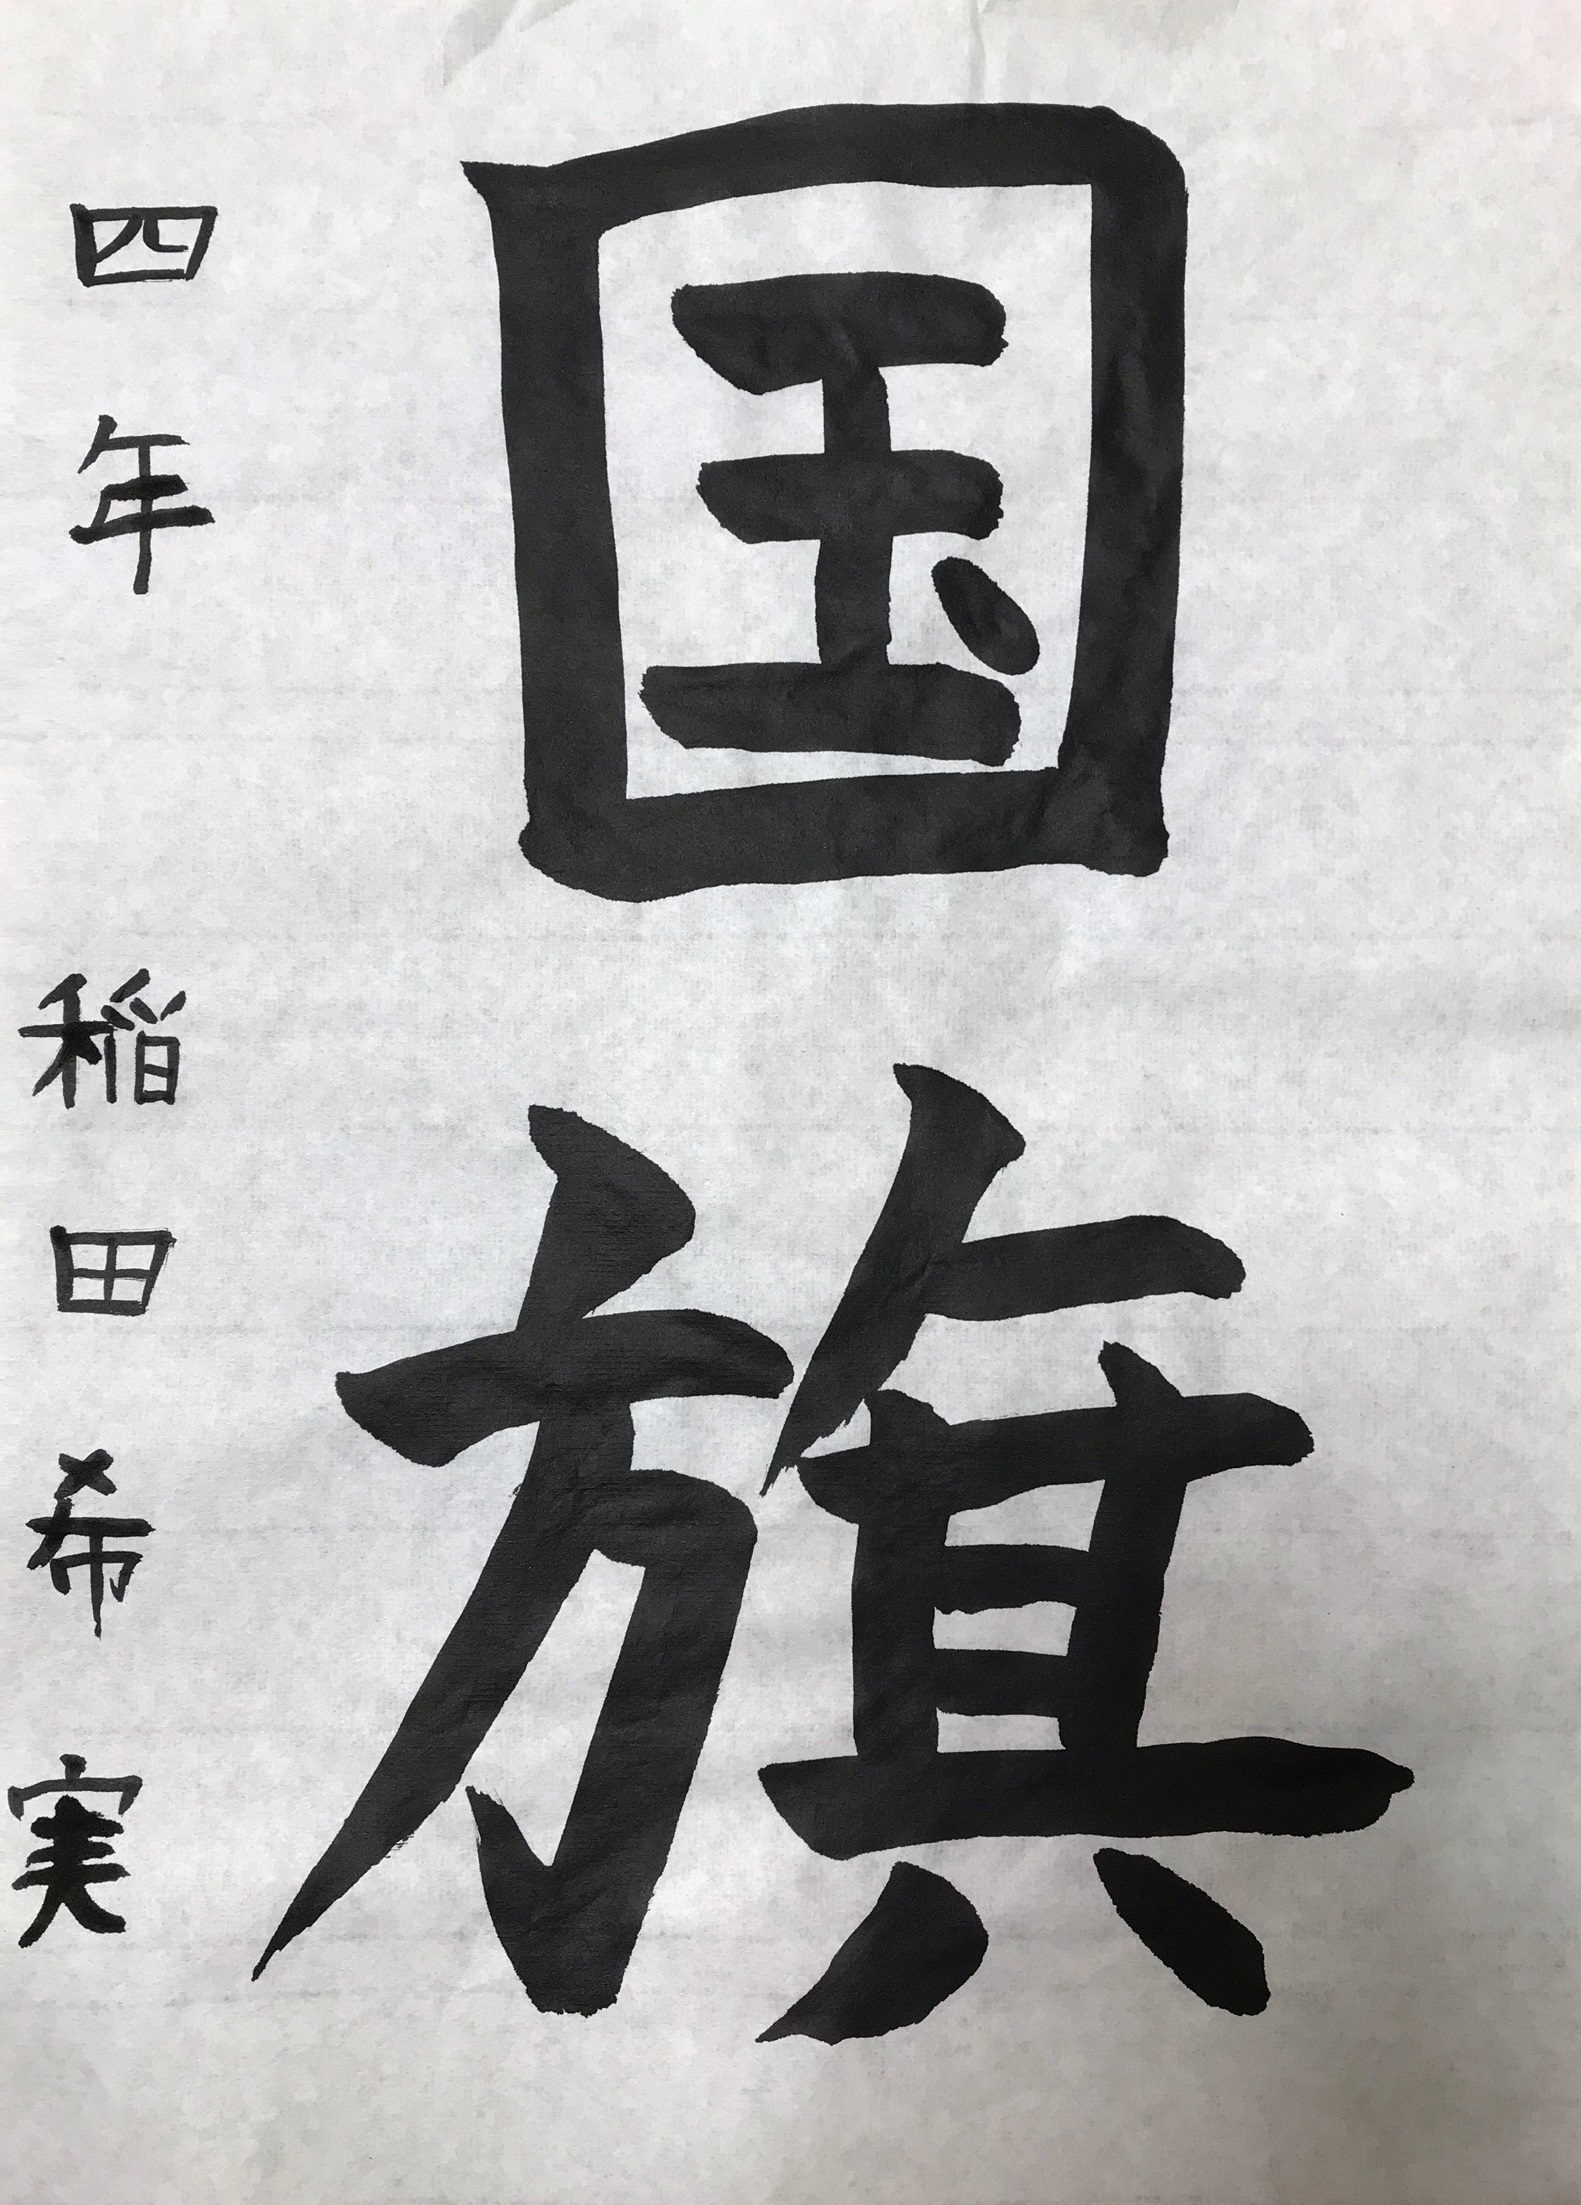 国旗
四年 稲田希実